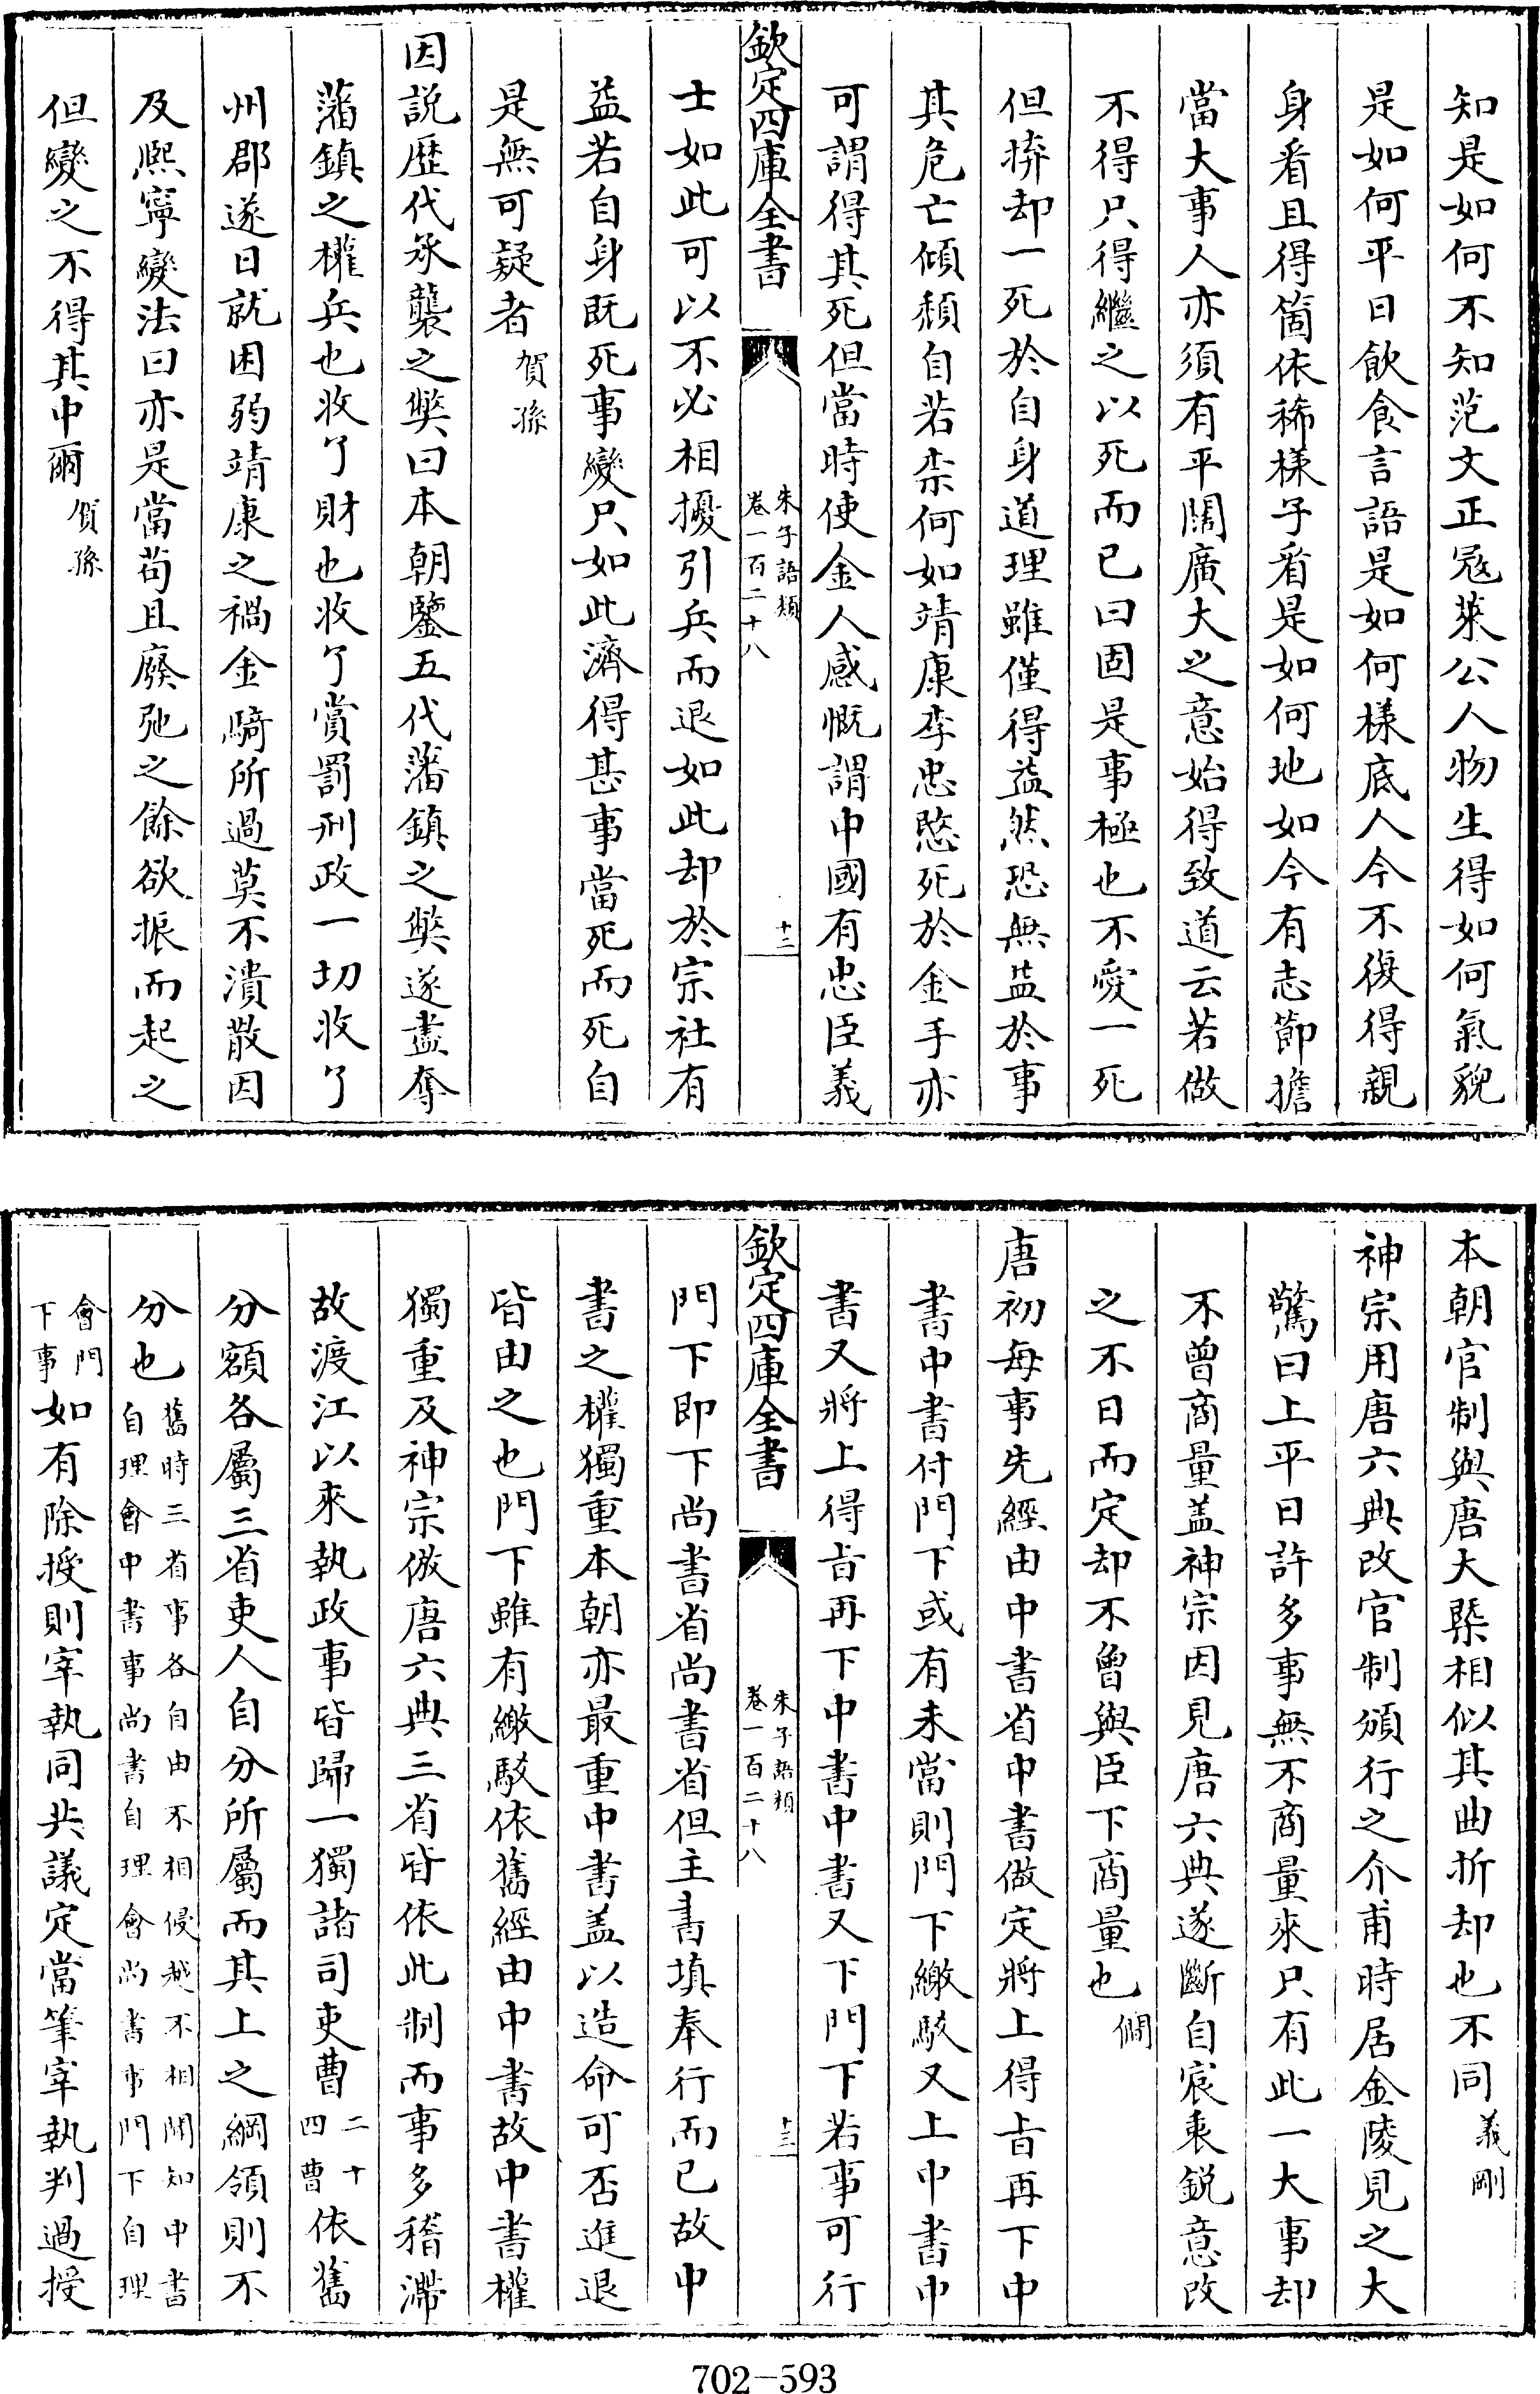 知是如何不知范文正冦萊公人物生得如何氣貌
是如何平日飲食言語是如何様底人今不復得親
身看且得箇依稀樣子看是如何地如今有志節擔
當大事人亦須有平闊廣大之意始得致道云若做
不得只得繼之以死而已曰固是事極也不愛一死
但拚却一死於自身道理雖僅得益然恐無益於事
其危亡傾頽自若柰何如靖康李忠愍死於金手亦
可謂得其死但當時使金人感慨謂中國有忠臣義
欽定四庫全書
朱子語類
卷一百二十八
十二
士如此可以不必相擾引兵而退如此却於宗社有
益若自身既死事變只如此濟得甚事當死而死自
是無可疑者賀孫
因説歴代承襲之獘曰本朝鑒五代藩鎮之獘遂盡奪
藩鎮之權兵也收了財也收了賞罰刑政一切收了
州郡遂日就困弱靖康之禍金騎所過莫不潰散因
及熙寧變法曰亦是當苟且廢弛之餘欲振而起之
但變之不得其中爾賀孫
本朝官制與唐大槩相似其曲折却也不同義剛
神宗用唐六典改官制頒行之介甫時居金陵見之大
驚曰上平日許多事無不商量來只有此一大事却
不曾商量盖神宗因見唐六典遂斷自宸衷鋭意改
之不日而定却不曾與臣下商量也僩
唐初每事先經由中書省中書做定將上得㫖再下中
書中書付門下或有未當則門下繳駁又上中書中
書又將上得㫖再下中書中書又下門下若事可行
欽定四庫全書
朱子語類
卷一百二十八
十三
門下即下尚書省尚書省但主書填奉行而已故中
書之權獨重本朝亦最重中書盖以造命可否進退
皆由之也門下雖有繳駁依舊經由中書故中書權
獨重及神宗倣唐六典三省皆依此制而事多稽滯
故渡江以來執政事皆歸一獨諸司吏曹二十四曹依舊
分額各屬三省吏人自分所屬而其上之綱領則不
分也舊時三省事各自由不相侵越不相關知中書自理會中書事尚書自理會尚書事門下自理
會門下事如有除授則宰執同共議定當筆宰執判過授
702-593